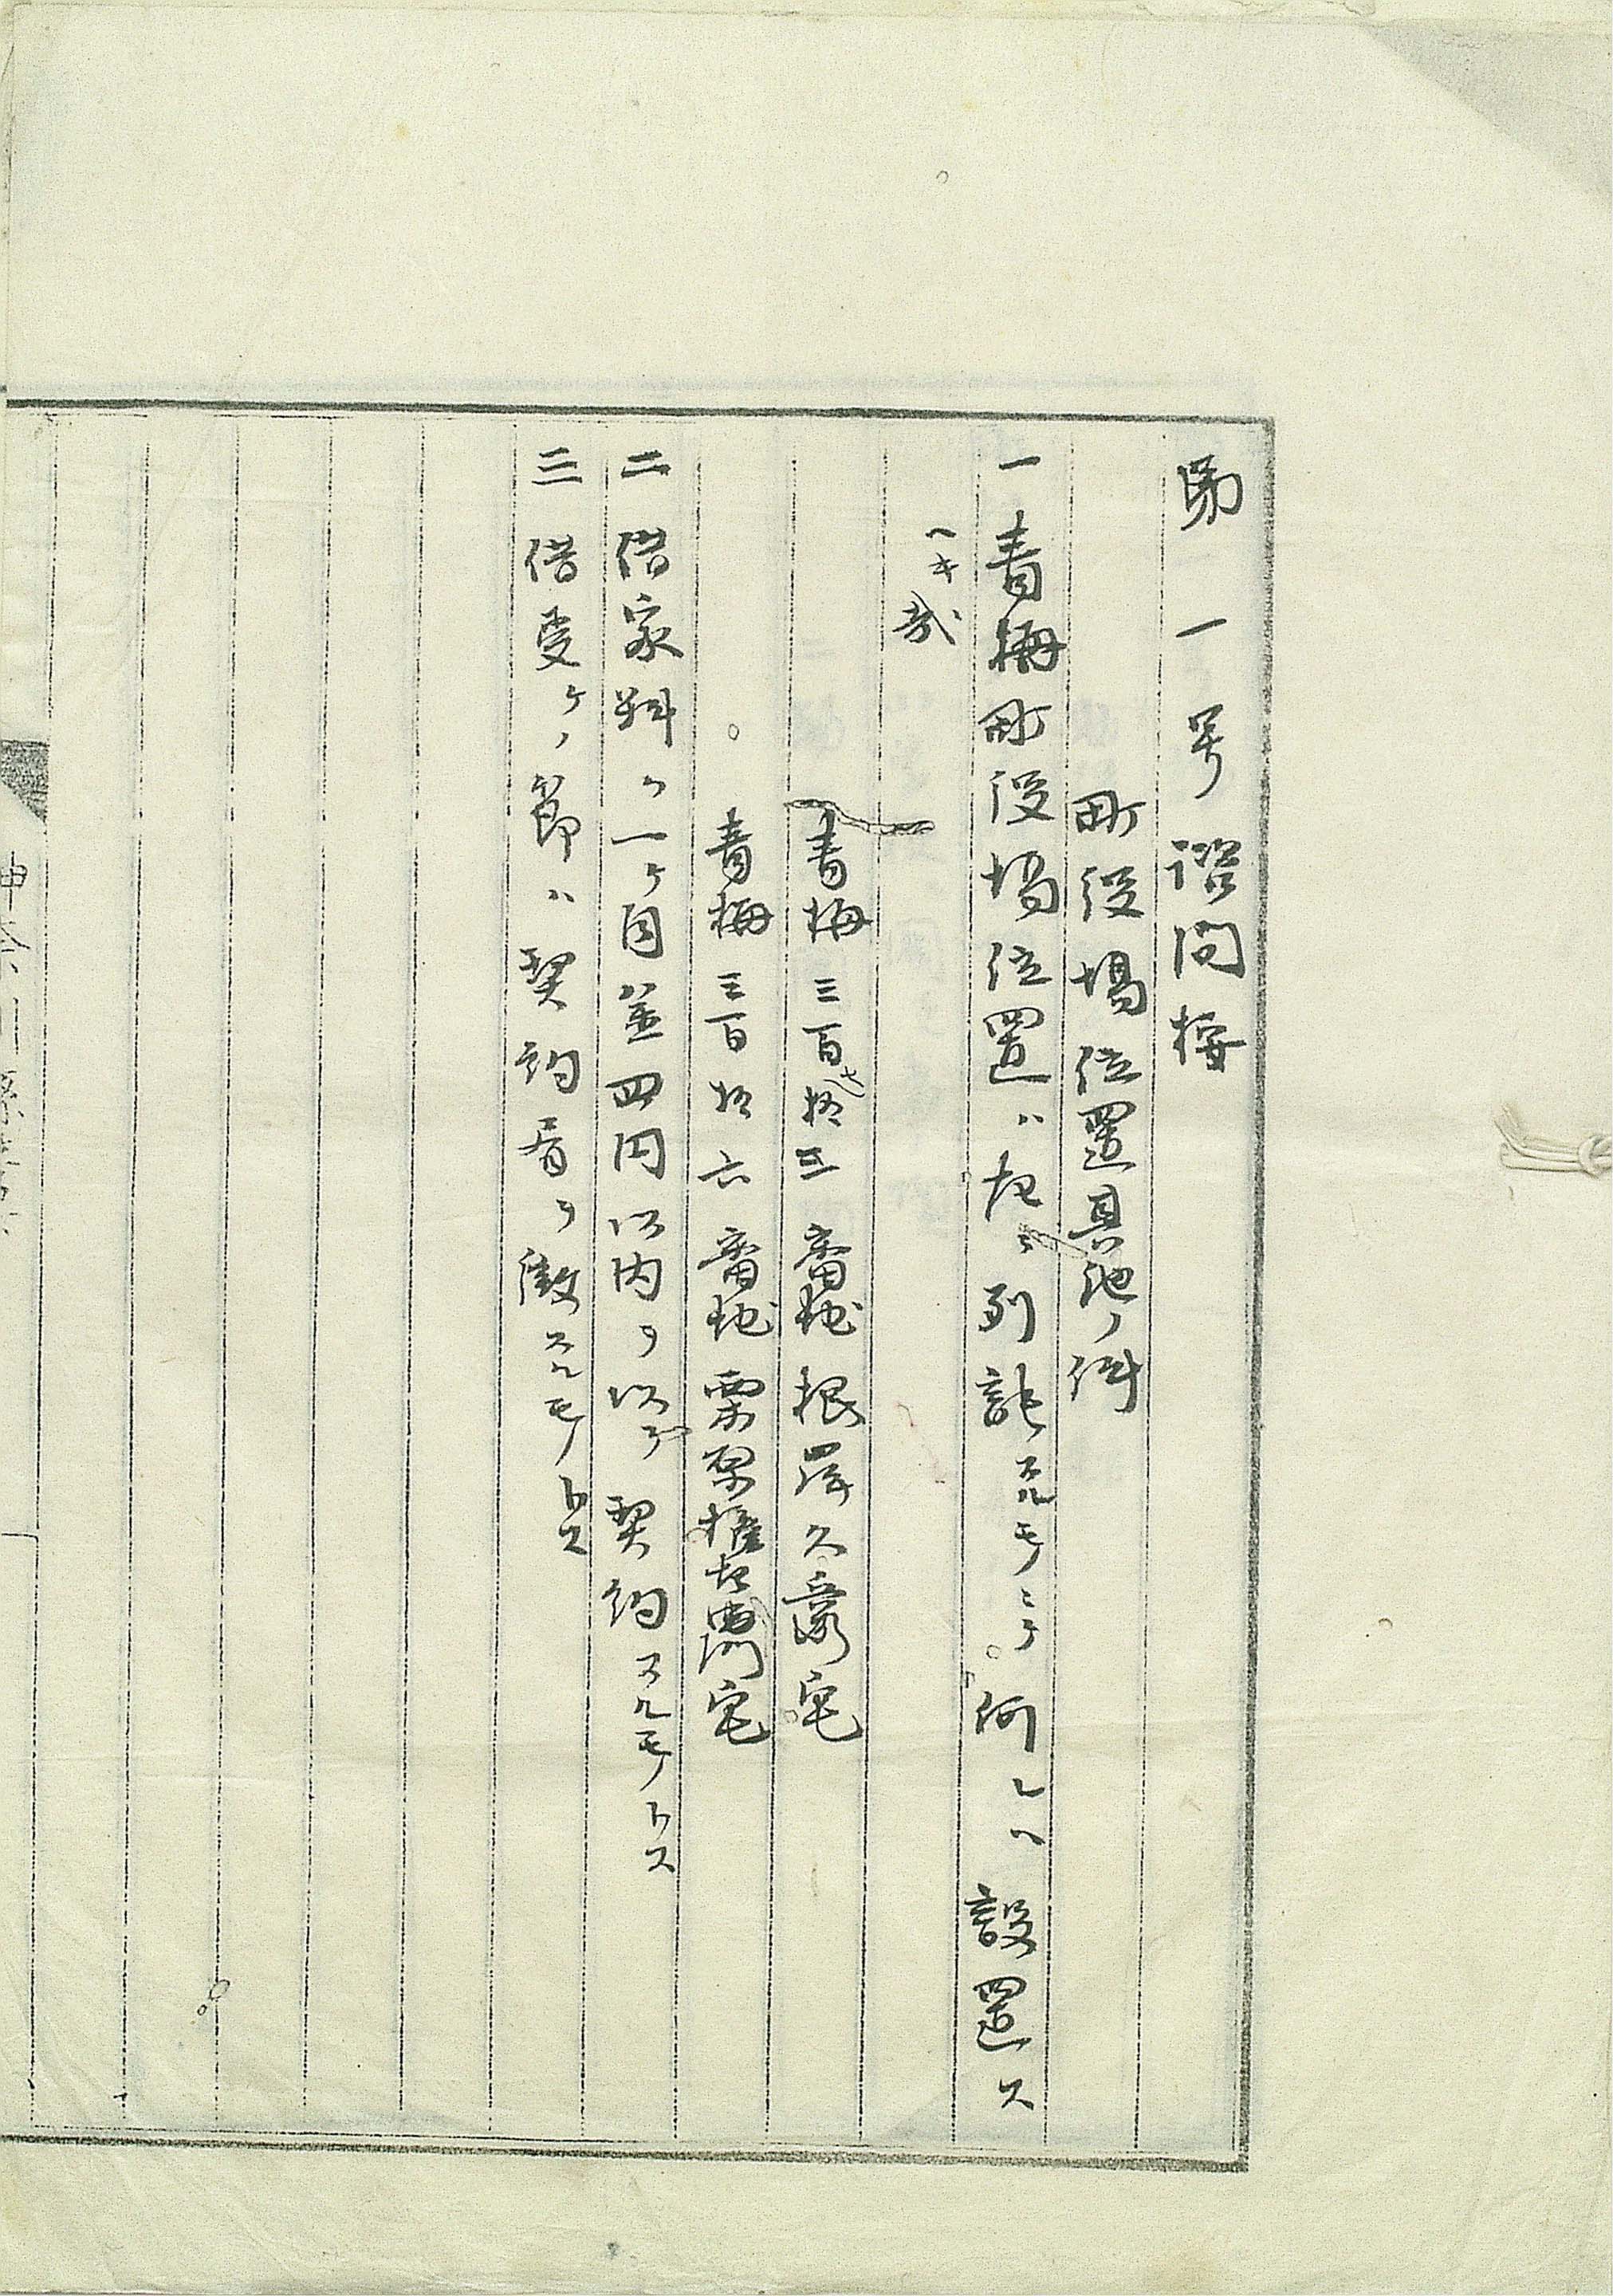 第一号諮問按
町役場位置其他ノ件
一青梅町役場位置ハ左ニ列記スルモノニテ何レヘ設置ス
ヘキ哉
青梅三百七拾三番地根岸久兵衛宅
青梅三百拾六番地栗原権右衛門宅
二借家料ハ一ヶ月金四円以内ヲ以テ契約スルモノトス
三借受ケノ節ハ契約書ヲ徴スルモノトス
神奈川縣